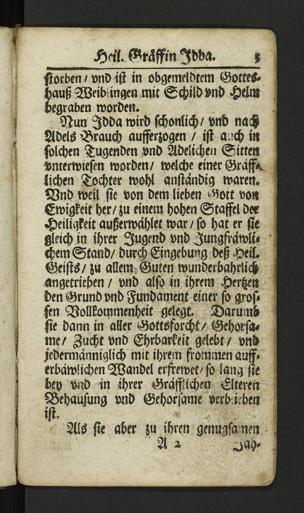 Heil. Gräffin Idda. 5
storben / vnd ist in obgemeldtem Gottes-
hauß Weiblingen mit Schild vnd Helm
begraben worden.
Nun Idda wird schonlich / vnd nach
Adels Brauch aufferzogen / ist auch in
solchen Tugenden vnd Adelichen Sitten
vnterwiesen worden / welche einer Gräff-
lichen Tochter wohl anständig waren.
Vnd weil sie von dem lieben Gott von
Ewigkeit her / zu einem hohen Staffel der
Heiligkeit außerwählet war / so hat er sie
gleich in ihrer Jugend vnd Jungfräwli-
chem Stand / durch Eingebung deß Heil.
Geists / zu allem Guten wunderbahrlich
angetrieben / vnd also in ihrem Hertzen
den Grund vnd Fundament einer so gros-
sen Vollkommenheit gelegt. Darumb
sie dann in aller Gottsforcht / Gehorsa-
me / Zucht vnd Ehrbarkeit gelebt / vnd
jedermänniglich mit ihrem frommen auff-
erbäwlichen Wandel erfrewet / so lang sie
bey vnd in ihrer Gräfflichen Elteren
Behausung vnd Gehorsame verblieben
ist.
Als sie aber zu ihren genugsamen
A 2 Jah-